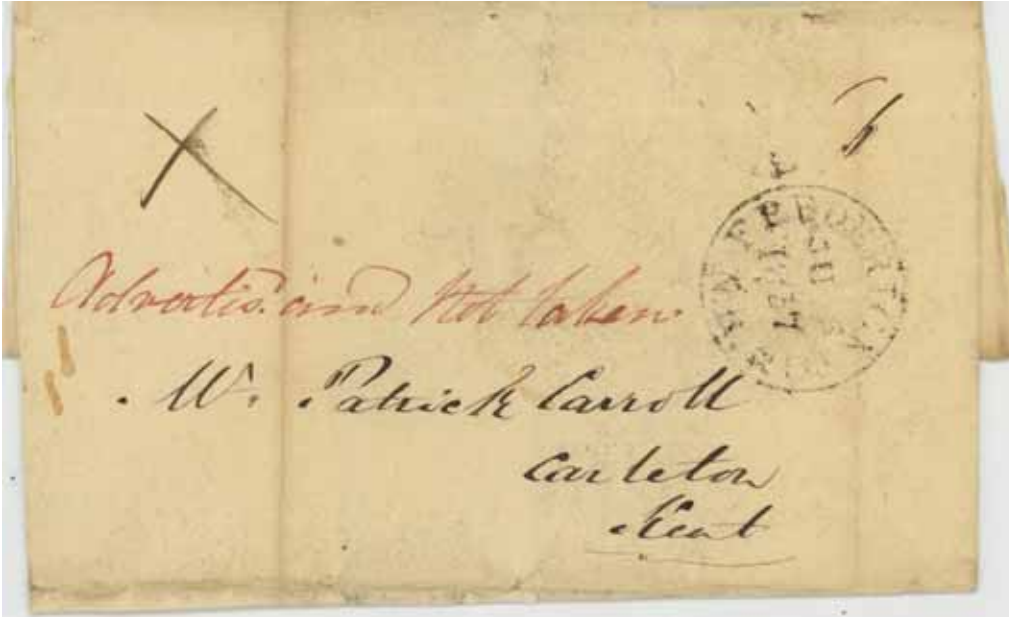 FREDERICTON
Advertis. and Not taken
Mr. Patrick Carroll
Carleton
Kent